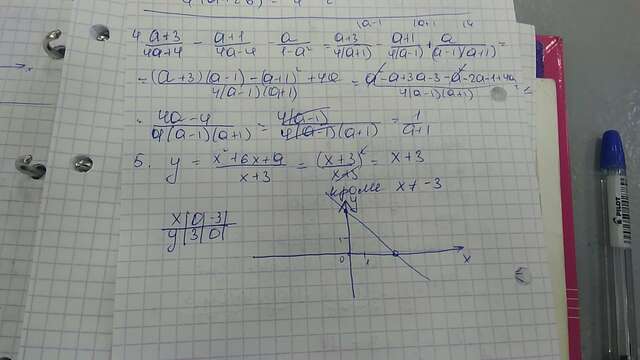 4. (a+3)/(4a+4) - (a+1)/(4a-4) - a/(1-a²) = (a+3)/(4(a+1)) - (a+1)/(4(a-1)) + a/((a-1)(a+1)) =
= ((a+3)(a-1) - (a+1)² + 4a)/(4(a-1)(a+1)) = (a² - a + 3a - 3 - a² - 2a - 1 + 4a)/(4(a-1)(a+1)) =
= (4a-4)/(4(a-1)(a+1)) = (4(a-1))/(4(a-1)(a+1)) = 1/(a+1)
5. y = (x²+6x+9)/(x+3) = (x+3)²/(x+3) = x+3
кроме x ≠ -3
x | 0 | -3 |
y | 3 | 0 |
y
1
0 1 x
PILOT